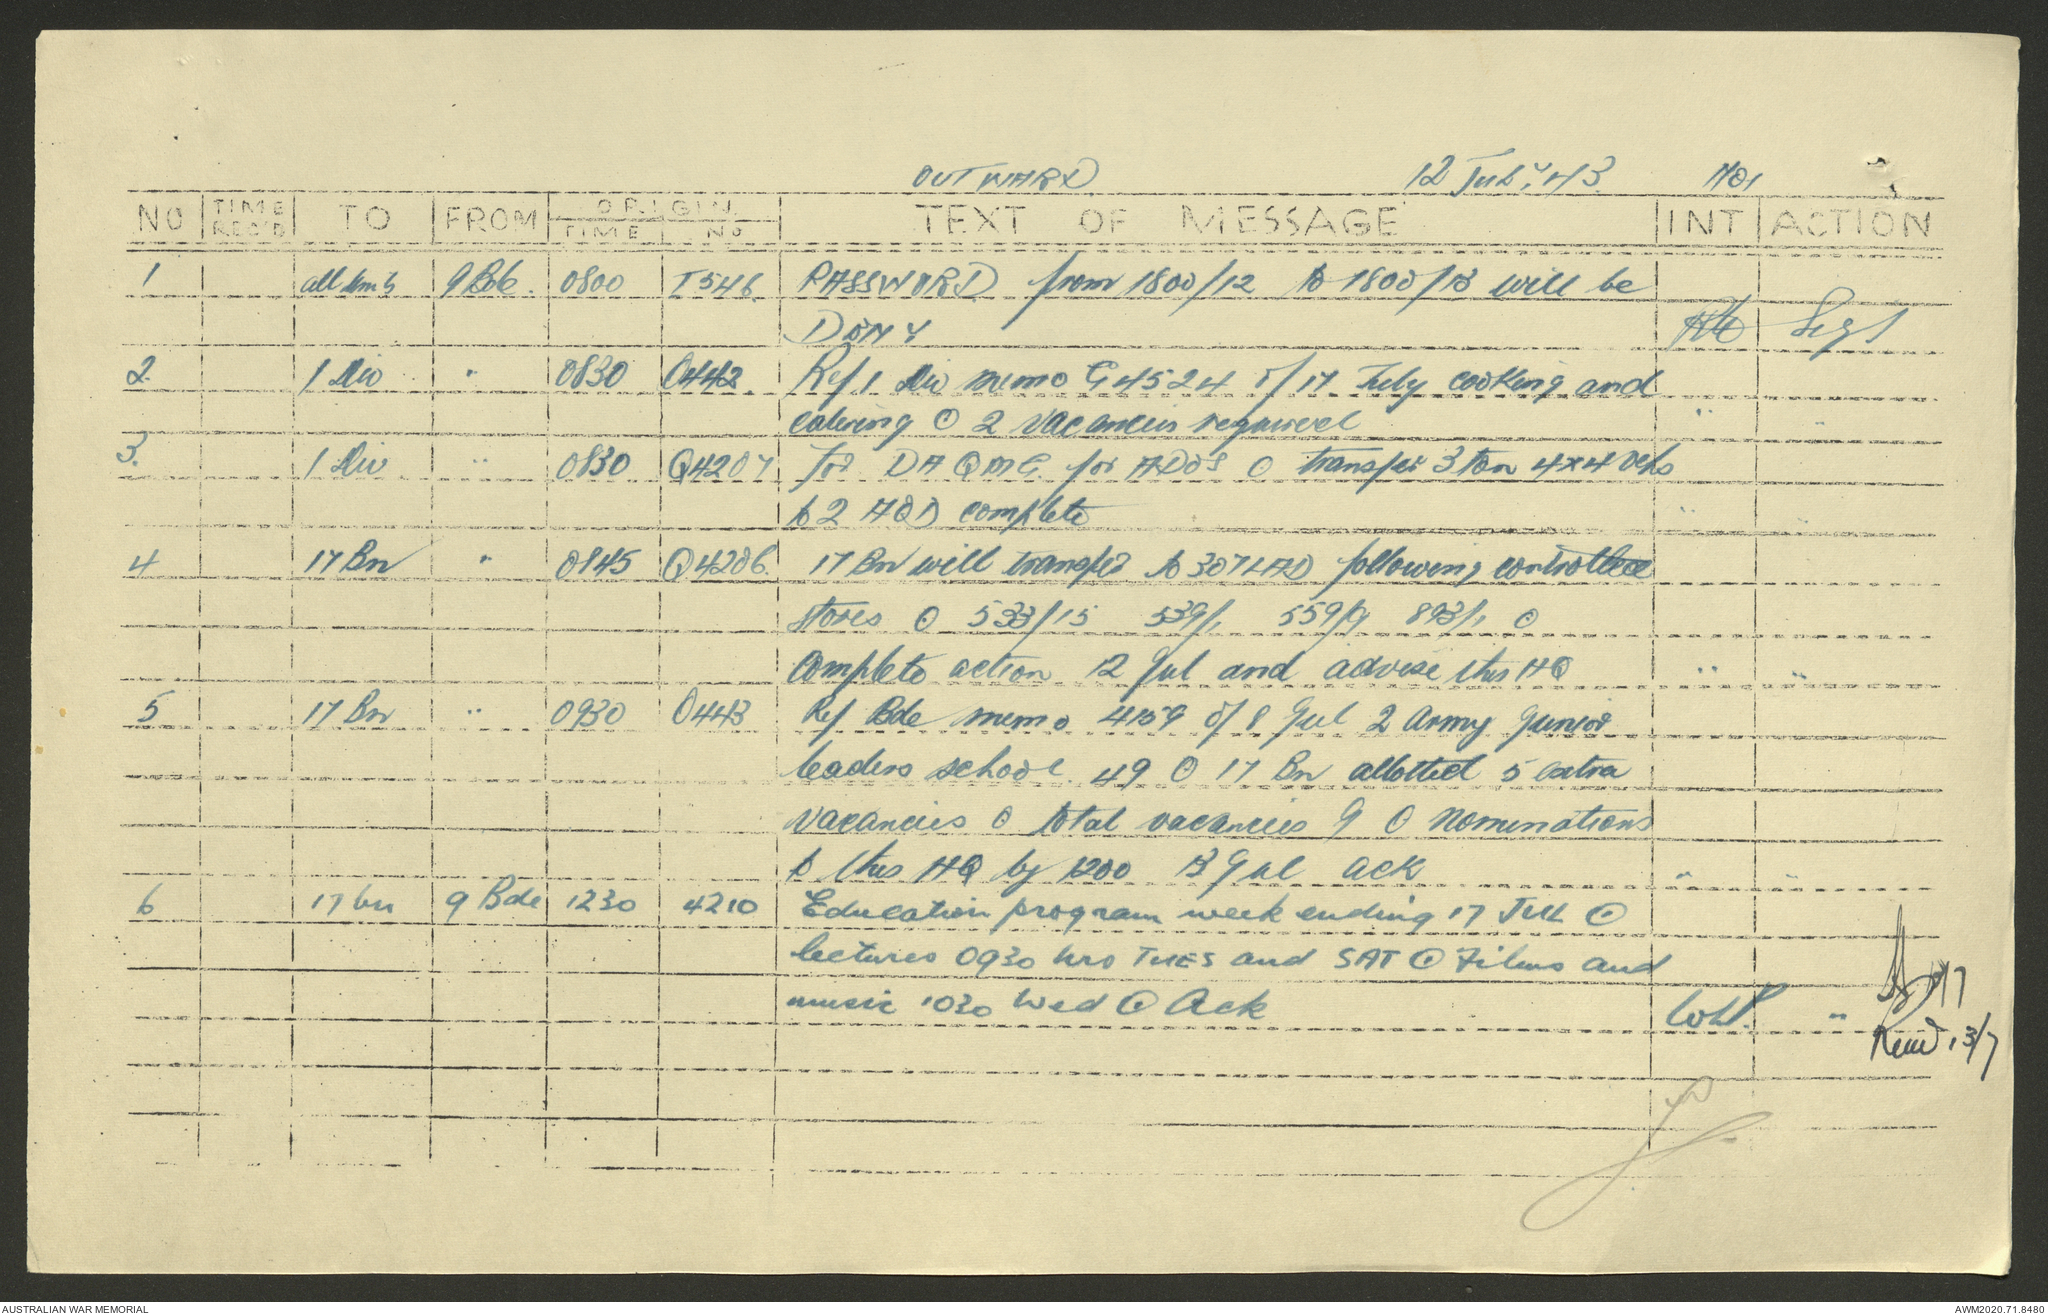 OUTWARD 12 July '43 No1
NO TIME REC'D TO FROM ORIGIN. TIME No TEXT OF MESSAGE INT ACTION
1 all Units 9 Bde. 0800 I546. PASSWORD from 1800/12 to 1800/13 will be
DEMY Sigs
2. 1 Div " 0830 O442 Ref 1 Div memo G4524 of 17 July cooking and
catering O 2 vacancies required " "
3. 1 Div " 0830 Q4207 for DAQMG for ADOS O transfer 3 ton 4x4 vehs
to 2 AOD complete " "
4 17 Bn " 0845 Q4206. 17 Bn will transfer to 307 LAD following controlled
stores O 533/15 539/1 559/9 893/1 O
Complete action 12 Jul and advise this HQ " "
5 17 Bn " 0930 O443 Ref Bde memo 4159 of 8 Jul 2 Army Junior
leaders school. 49 O 17 Bn allotted 5 extra
vacancies O total vacancies 9 O nominations
to this HQ by 1200 13 Jul ack " "
6 17 bn 9 Bde 1230 4210 Education program week ending 17 JUL O
lectures 0930 hrs TUES and SAT O Films and
music 1030 Wed O Ack "
13/7
AUSTRALIAN WAR MEMORIAL AWM2020.71.8480